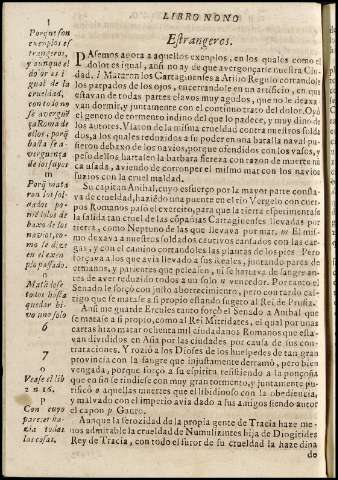 LIBRO NONO
Estrangeros.
l
Porque son
exemplos es
trangeros,
y aunque el
dolor es i
gual de la
crueldad,
con todo no
se avergüē
ça Roma de
ellos, porq̃
basta se a-
verguença
de los suyos
m
n
6
7
o
Vease el lib
p
Con cuyo
todas
las cosas.
PAsemos agora a aquellos exemplos, en los quales como el
dolor es igual, ansi no ay de que avergonçarse nuestra Ciu-
dad. l Mataron los Cartaginenses a Atilio Regulo cortandole
los parpados de los ojos, encerrandole en un artificio, en que
estavan de todas partes clavos muy agudos, que no le dexa-
van dormir, y juntamente con el continuo trato del dolor. O
el genero de tormento indino del que lo padece, y muy dino de
los autores. Usaron de la misma crueldad contra nuestros solda
dos, a los quales reduzidos a su poder en una batalla naval pu-
sieron debaxo de los navios, porque ofendidos con los vasos, y
peso dellos hartasen la barbara fiereza con razon de muerte nū
ca usada, aviendo de corromper el mismo mar con los navios
suzios con la cruel maldad.
Su capitan Anibal, cuyo esfuerço por la mayor parte consta-
va de crueldad, haziendo una puente en el rio Vergelo con cuer
pos Romanos pasó el exercito, para que la tierra esperimentase
la salida tan cruel de las cōpañias Cartaginenses llevadas por
tierra, como Neptuno de las que llevava por mar. m El mis-
mo dexava a nuestros soldados cautivos cansados con las car-
gas, y con el camino cortandoles las plantas de los pies. Pero
forçava a los que avia llevado a sus reales, juntando pares de
ermanos, y parientes que peleasen, ni se hartava de sangre an-
tes de aver reduzido todos a un solo n vencedor. Por tanto el
Senado le forçó con justo aborrecimiento, pero con tardo cas-
tigo que se matase a si propio estando sugeto al Rei de Prusia.
Ansi me guarde Ercules tanto forçó el Senado a Anibal que
se matase a si propio, como al Rei Mitridates, el qual por unas
cartas hizo matar ochenta mil ciudadanos Romanos que esta-
van dividos en Asia por las ciudades por causa de sus con
trataciones. Y rozió a los Dioses de los huespedes de tan gran
provincia con la sangre que injustamente derramó, pero bien
vengada, porque forçó a su espiritu resistiendo a la ponçoña
que en fin se rindiese con muy gran tormento, y juntamente pu-
rificó a aquellas muertes que el libidinoso en la obediencia,
y malvado en el imperio avia dado a sus amigos siendo autor
el capon p Gauro.
Aunque la ferozidad de la propia gente de Tracia haze me-
nos admirable la crueldad de Numulizintes hija de Diogirides
Rey de Tracia, con todo el furor de su crueldad la haze dina
do